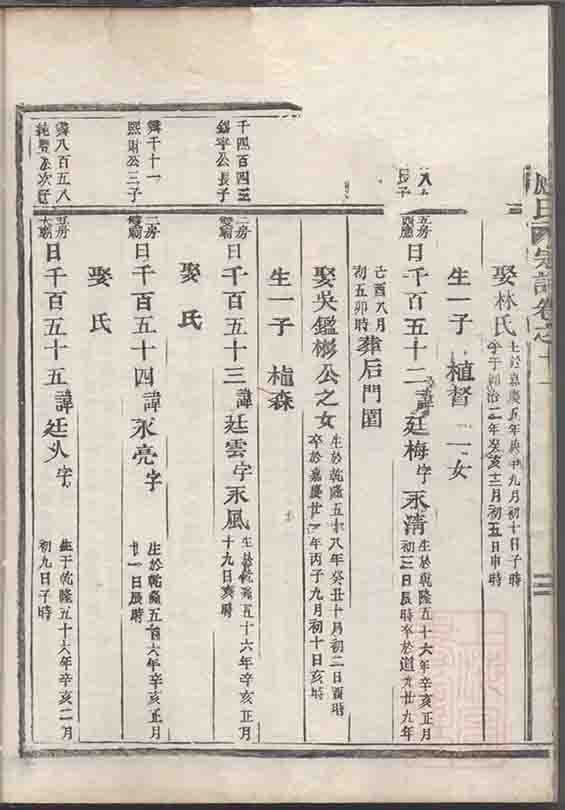 氏宗譜卷之十一
娶林氏
生於嘉慶五年庚申九月初十日子時
卒于同治二年癸亥十二月初五日申時
生一子 植督 一女
長子
五房
日千百五十二諱廷梅字永清
生於乾隆五十六年辛亥正月
初三日辰時卒於道光廿九年
己酉八月
初五卯時
葬后門園
娶吳鑑彬公之女
生於乾隆五十八年癸丑十月初二日酉時
卒於嘉慶廿一年丙子九月初十日亥時
生一子 植森
千四百四三
公長子
二房
日千百五十三諱廷雲字永風
生於乾隆五十六年辛亥正月
十九日亥時
娶氏
霽千十一
熙財公三子
二房
日千百五十四諱永亮字
生於乾隆五十六年辛亥正月
廿一日辰時
娶氏
霽八百五八
公次子
五房
日千百五十五諱廷火字
生于乾隆五十六年辛亥二月
初九日子時